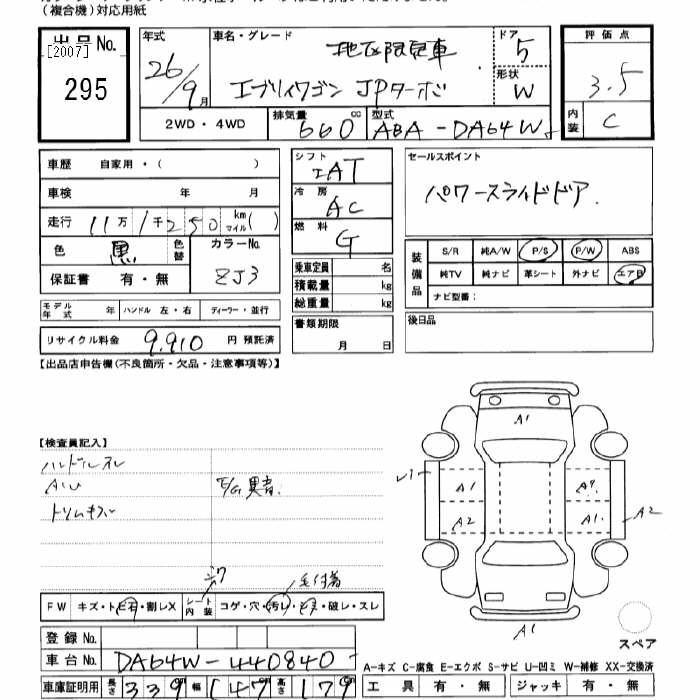 (複合機)対応用紙
出品No.
[2007]
295
年式
26/9月
車名・グレード
地区限定車
エブリイワゴン JPターボ
ドア 5
形状 W
評価点
3.5
内装 C
2WD・4WD
排気量 660 cc
型式 ABA-DA64W
車歴 自家用・( )
車検 年 月
走行 11万1千250 km マイル( )
色 黒 色替
カラーNo. ZJ3
保証書 有・無
シフト IAT
冷房 AC
燃料 G
乗車定員 名
積載量 kg
総重量 kg
セールスポイント
パワースライドドア.
装備品
S/R 純A/W P/S P/W ABS
純TV 純ナビ 革シート 外ナビ エアB
ナビ型番:
モデル年式 年 ハンドル 左・右 ディーラー・並行
書類期限
月 日
後日品
リサイクル料金 9,910 円 預託済
【出品店申告欄(不良箇所・欠品・注意事項等)】
【検査員記入】
ハンドルスレ
AIU
トリムキズ
E/G異音.
A1
A1
A2
A1.
A2
A1
スペア
毛付着
FW キズ・トビ石・割レX
シート内装 コゲ・穴・汚レ・・破レ・スレ
登録No.
車台No. DA64W-440840
車庫証明用 長さ 339 幅 147 高さ 179
A-キズ C-腐食 E-エクボ S-サビ U-凹ミ W-補修 XX-交換済
工具 有・無 ジャッキ 有・無